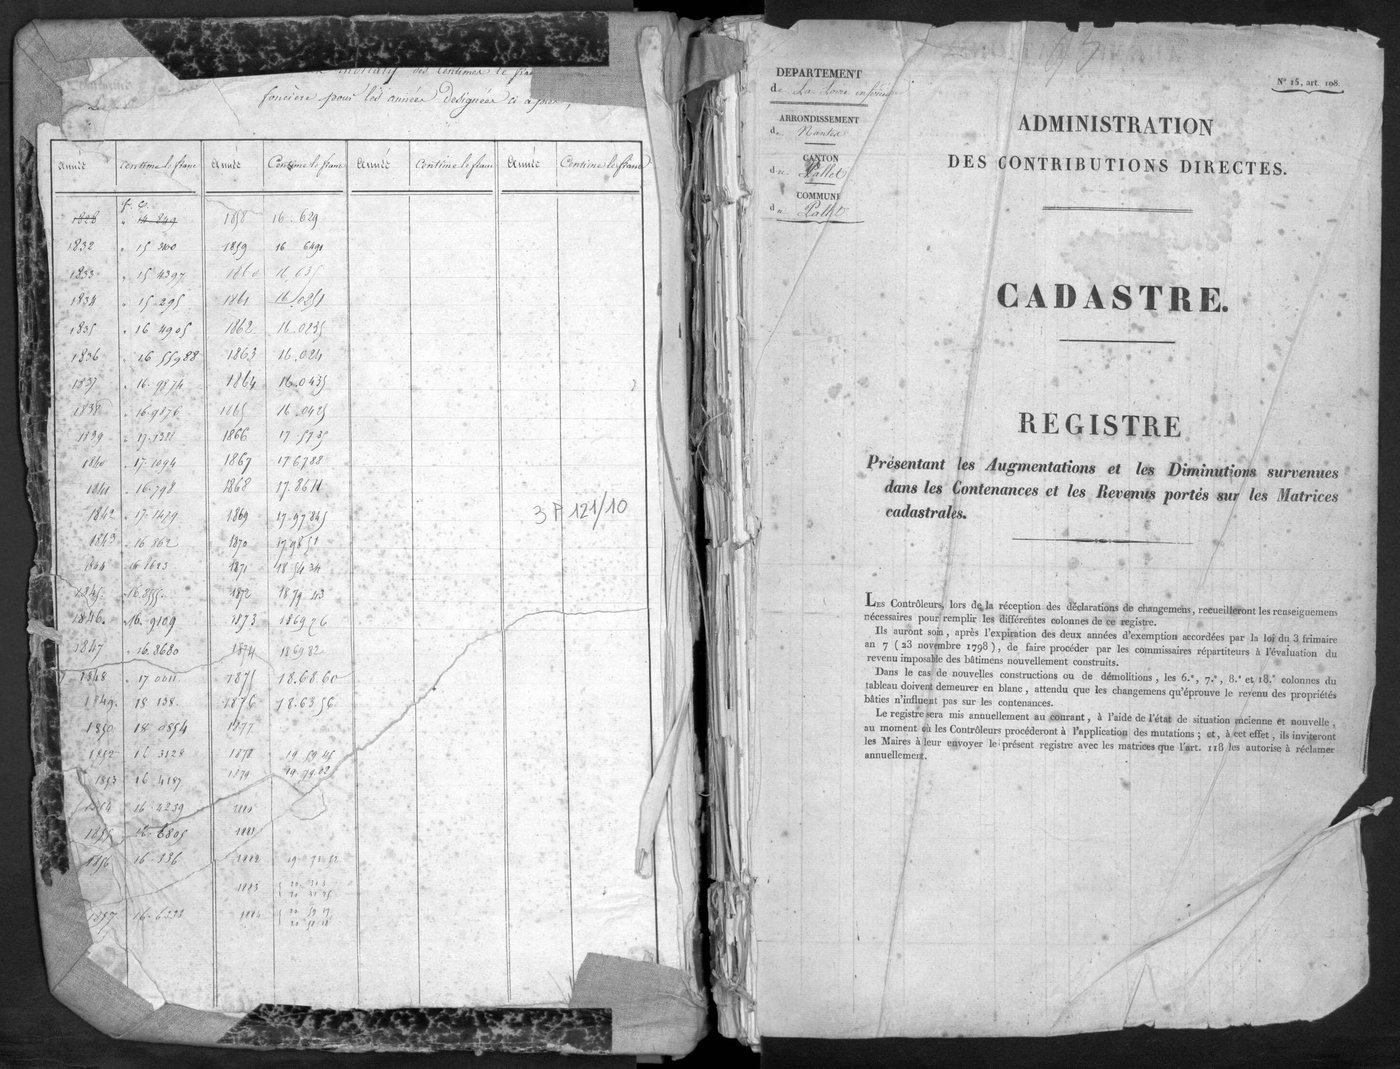 des Centimes le fran
foncière pour les années designées ci après,
Année Centime le franc Année Centime le franc Année Centime le franc Année Centime le franc
f. c.
1828 " 14 849 1858 16.629
1832 " 15 300 1859 16 6491
1833 " 15 4397 1860 16 035
1834 " 15 295 1861 16.0251
1835 " 16 4905 1862 16.0235
1836 " 16 55988 1863 16.024
1837 " 16.9874 1864 16.0435
1838 " 16.9176 1865 16.0425
1839 1866 17.5735
1840 " 17.1094 1867 17 6788
1841 " 16.798 1868 17.8611
1842 " 17.1479 1869 17.97845
3 P 121/10
1843 " 16 862 1870 17.9851
1844 16 1623 1871 18 5434
1845 16.855 1872 1879 43
1846. 16.9109 1873 186976
1847 16.8680 1874 186982
1848 17 1875 18.68.60
1849. 18 138. 1876 18.6356
1850 18 0854 1877
1852 16 3128 1878 19 59 45
1853 16.4187 1879 19.79.82
1854 16.4239 1880
1855 16.6805 1881
1856 16.136 1882
1883
1857 16.6233 1884
DEPARTEMENT
de La Loire inférieure
ARRONDISSEMENT
de Nantes
CANTON
du Pallet
COMMUNE
du Pallet
N° 15, art. 108.
ADMINISTRATION
DES CONTRIBUTIONS DIRECTES.
CADASTRE.
REGISTRE
Présentant les Augmentations et les Diminutions survenues
dans les Contenances et les Revenus portés sur les Matrices
cadastrales.
LES Contrôleurs, lors de la réception des déclarations de changemens, recueilleront les renseignemens
nécessaires pour remplir les différentes colonnes de ce registre.
Ils auront soin, après l'expiration des deux années d'exemption accordées par la loi du 3 frimaire
an 7 (23 novembre 1798), de faire procéder par les commissaires répartiteurs à l'évaluation du
revenu imposable des bâtimens nouvellement construits.
Dans le cas de nouvelles constructions ou de démolitions, les 6.e, 7.e, 8.e et 18.e colonnes du
tableau doivent demeurer en blanc, attendu que les changemens qu'éprouve le revenu des propriétés
bâties n'influent pas sur les contenances.
Le registre sera mis annuellement au courant, à l'aide de l'état de situation ancienne et nouvelle,
au moment où les Contrôleurs procéderont à l'application des mutations; et, à cet effet, ils inviteront
les Maires à leur envoyer le présent registre avec les matrices que l'art. 118 les autorise à réclamer
annuellement.